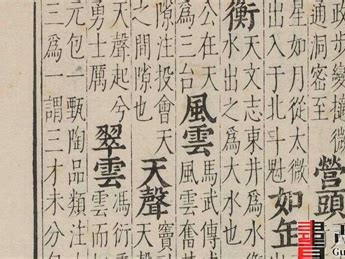 政步變攝微
通洞密至
營頭
星如月從太微
出入于北十魁
如缶
衡
天文志東井爲水
大水出之爲
公在天
爲三台
風雲
馬武傳
風雲奮
隙注投會天
之間隙也
天聲
天聲起兮
勇士厲
翠雲
馮衍
雲而
元包一甄陶品類注
三爲一謂三才未分